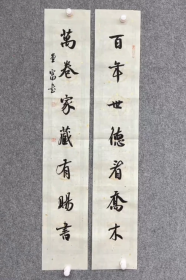 百年世德看喬木
萬卷家藏有賜書